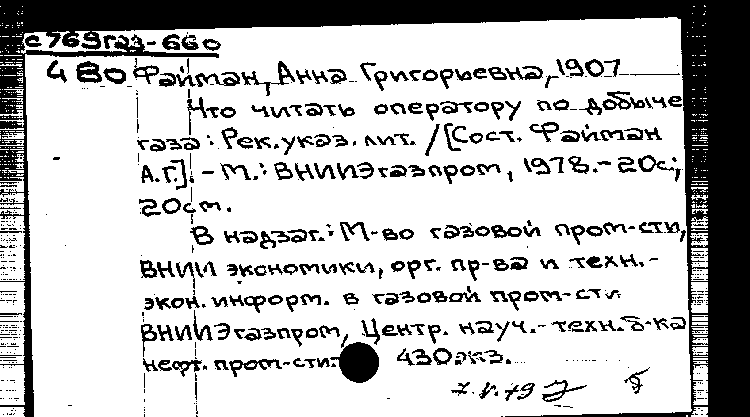 с769газ-660
480 Файман, Анна Григорьевна, 1907
Что читать оператору по добыче
газа: Рек. указ. лит. / [Сост. Файман
А.Г.]. - М.: ВНИИЭгазпром, 1978. - 20с.;
20см.
В надзаг.: М-во газовой пром-сти,
ВНИИ экономики, орг. пр-ва и техн.-
экон. информ. в газовой пром-сти
ВНИИЭгазпром, Центр. науч.-техн. б-ка
нефт. пром-сти. 430экз.